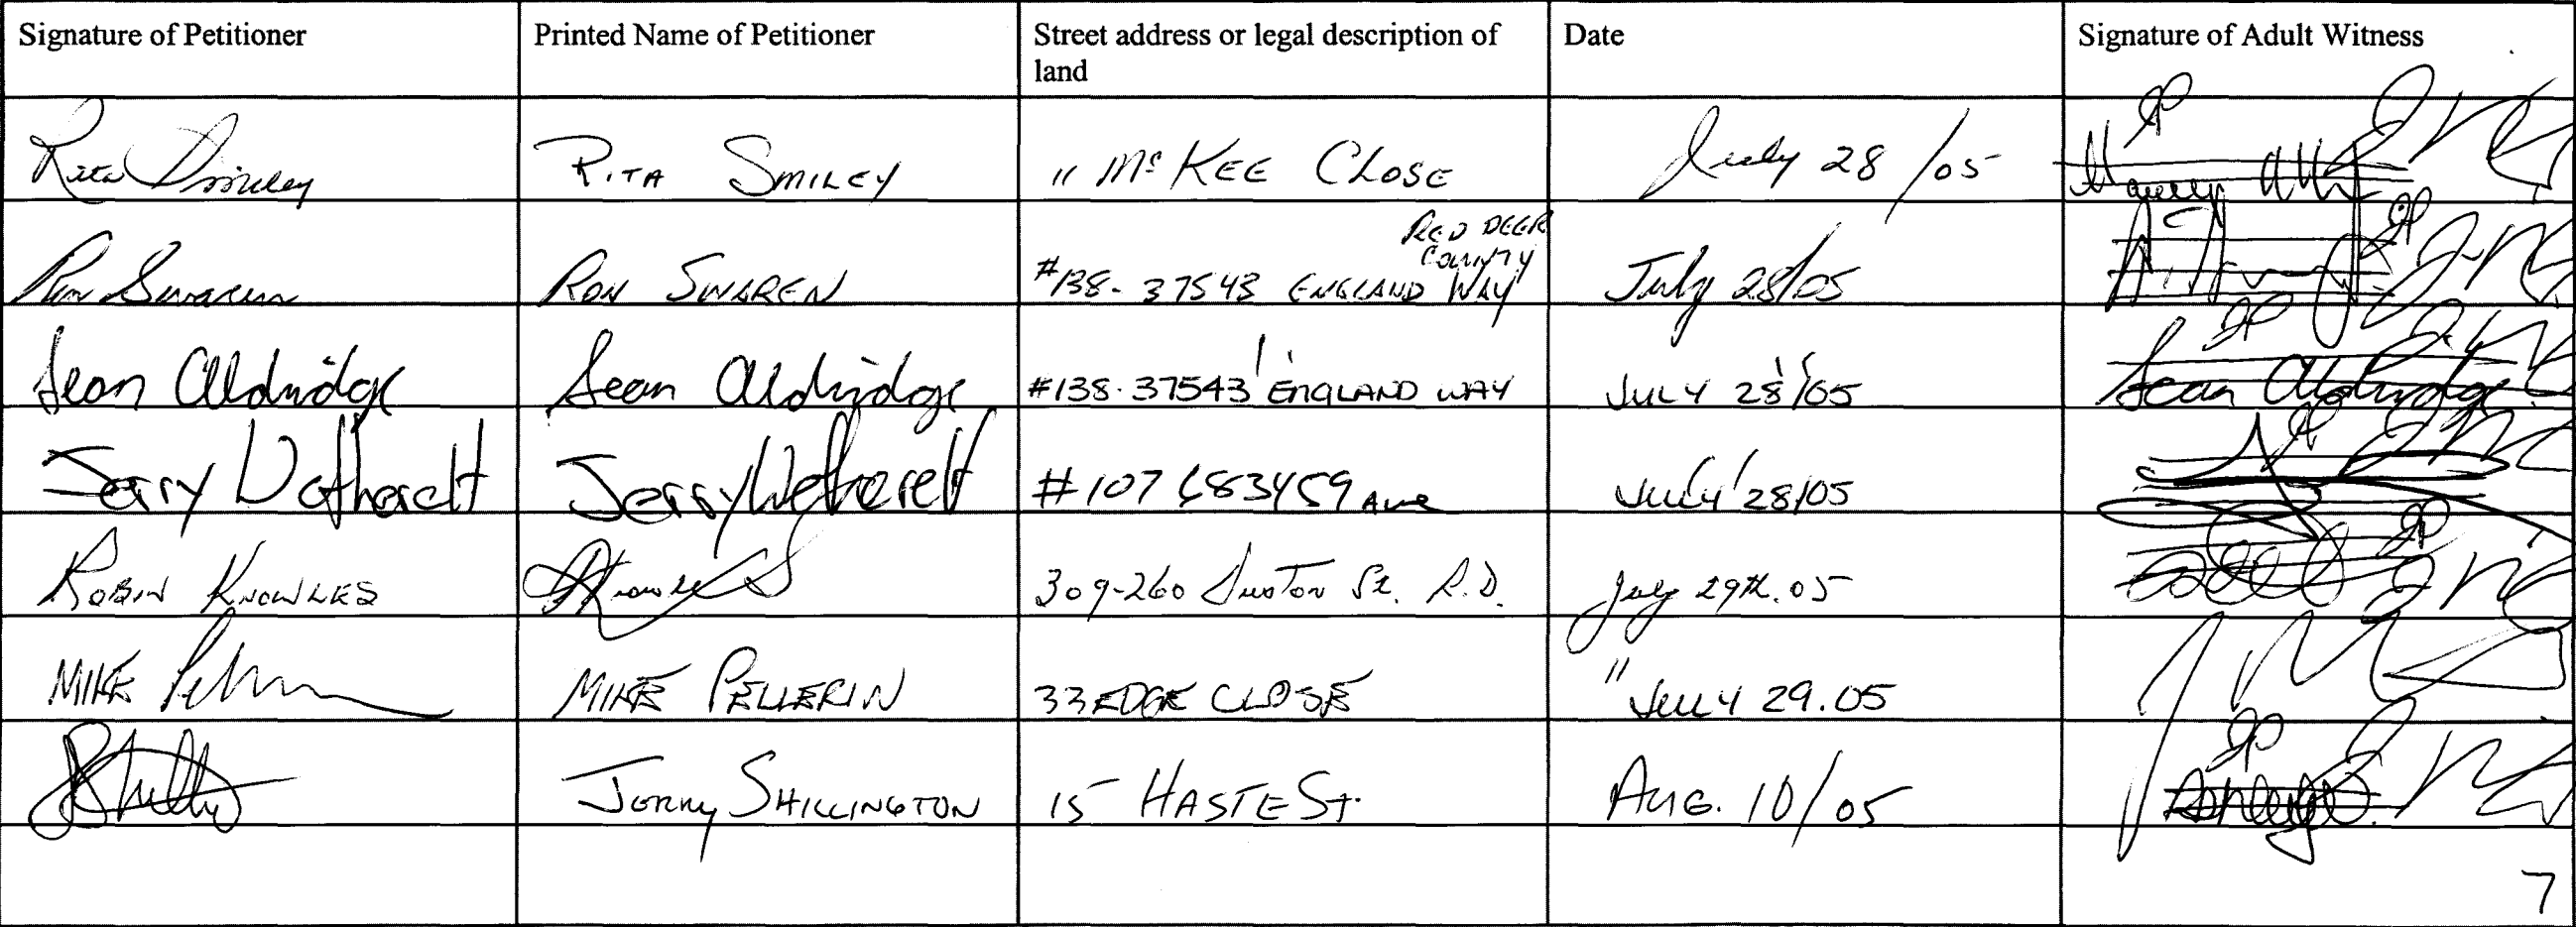 Signature of Petitioner
Printed Name of Petitioner
Street address or legal description of
land
Date
Signature of Adult Witness
Rita Smiley
RITA SMILEY
11 McKEE CLOSE
July 28/05
Ron Swaren
RON SWAREN
RED DEER
COUNTY
#138-37543 ENGLAND WAY
July 28/05
Sean Aldridge
Sean Aldridge
#138-37543 ENGLAND WAY
JULY 28/05
Sean Aldridge
Jerry Wetherelt
Jerry Wetherelt
#107 683459 Ave
July 28/05
ROBIN KNOWLES
Knowles
309-260 St. R.D.
July 29th.05
MIKE
MIKE PELLERIN
33 EDGE CLOSE
" JULY 29.05
JERRY SHILLINGTON
15 HASTE St.
AUG. 10/05
7